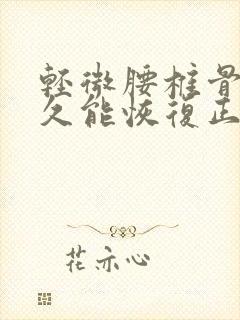 輕微腰椎骨
久能恢復正
花亦心